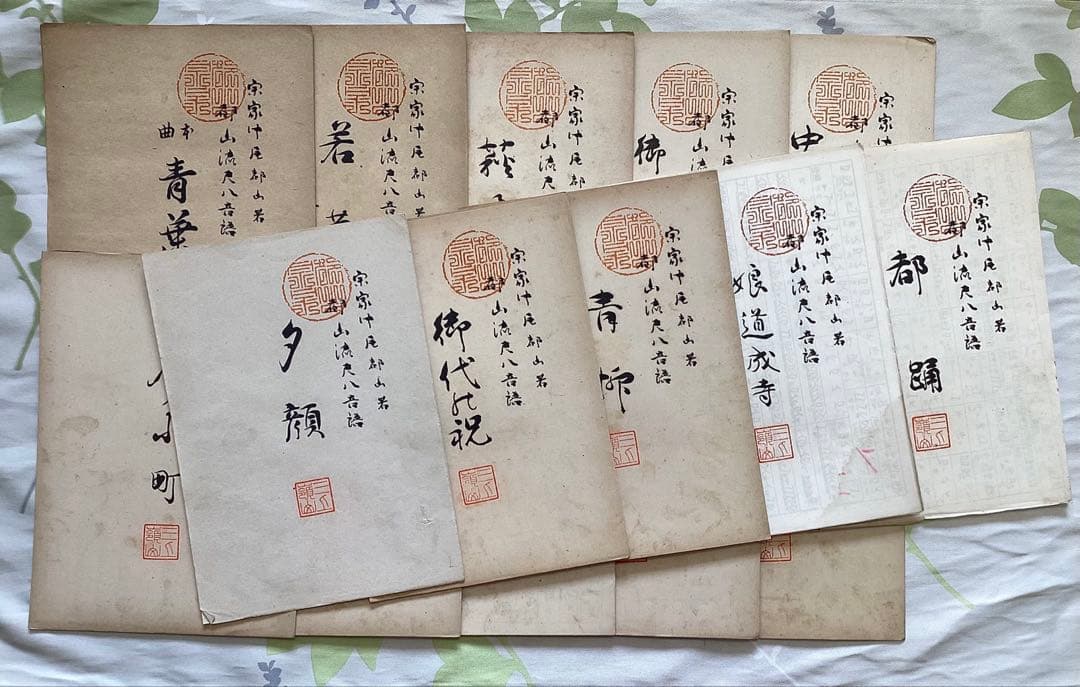 宗家中尾都山著
都山流尺八音譜
本曲
青葉
宗家中尾都山著
都山流尺八
若
宗家中尾都山
都山流尺八
萩
宗家中尾都山
都山流尺
御
宗家
都山流
小町
宗家中尾都山著
都山流尺八音譜
夕顔
宗家中尾都山著
都山流尺八音譜
御代の祝
宗家中尾都山著
都山流尺八音譜
青柳
宗家中尾都山著
都山流尺八音譜
娘道成寺
宗家中尾都山著
都山流尺八音譜
都踊